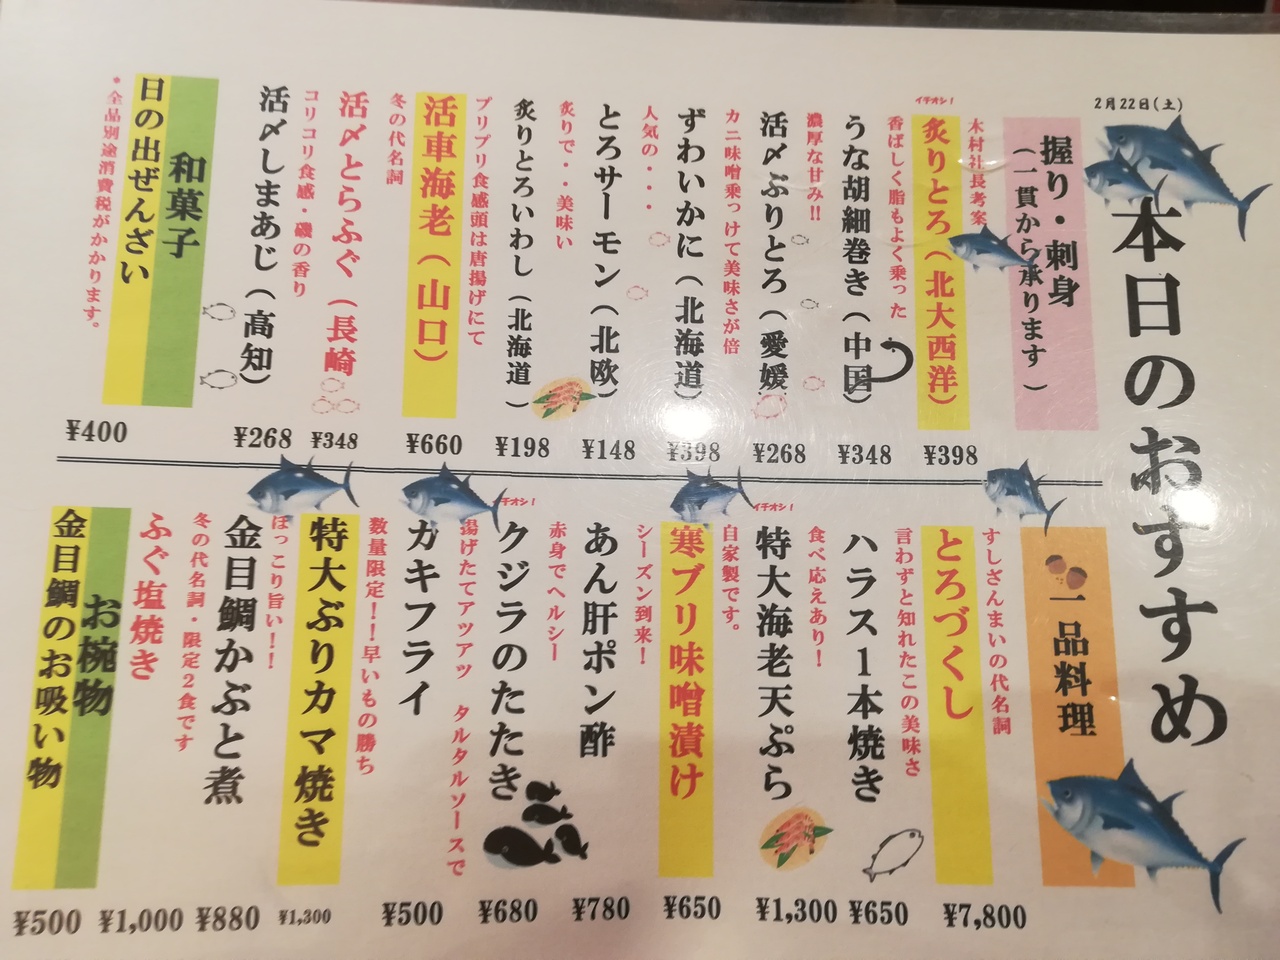 2月22日(土)
本日のおすすめ
握り・刺身
(一貫から承ります)
木村社長考案
イチオシ!
炙りとろ(北大西洋)
¥398
香ばしく脂もよく乗った
うな胡細巻き(中国)
¥348
濃厚な甘み!!
活〆ぶりとろ(愛媛)
¥268
カニ味噌乗っけて美味さが倍
ずわいかに(北海道)
¥398
人気の・・・
とろサーモン(北欧)
¥148
炙りで・・美味い
炙りとろいわし(北海道)
¥198
プリプリ食感頭は唐揚げにて
活車海老(山口)
¥660
冬の代名詞
活〆とらふぐ(長崎)
¥348
コリコリ食感・磯の香り
活〆しまあじ(高知)
¥268
和菓子
日の出ぜんざい
¥400
*全品別途消費税がかかります。
一品料理
すしざんまいの代名詞
とろづくし
¥7,800
言わずと知れたこの美味さ
ハラス1本焼き
¥650
食べ応えあり!
イチオシ!
特大海老天ぷら
¥1,300
自家製です。
寒ブリ味噌漬け
¥650
シーズン到来!
あん肝ポン酢
¥780
赤身でヘルシー
イチオシ!
クジラのたたき
¥680
揚げたてアツアツ タルタルソースで
ガキフライ
¥500
数量限定!!早いもの勝ち
特大ぶりカマ焼き
¥1,300
ほっこり旨い!!
金目鯛かぶと煮
¥880
冬の代名詞・限定2食です
ふぐ塩焼き
¥1,000
お椀物
金目鯛のお吸い物
¥500